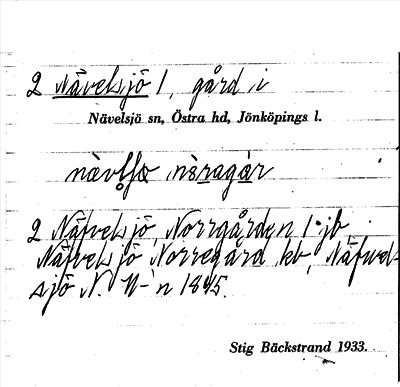 2 Nävelsjö 1, gård i
Nävelsjö sn, Östra hd, Jönköpings l.
2 Näfvelsjö, Norrgården 1 jb
Näfvelsjö Norregård kb, Näfvel-
sjö N. 1845.
Stig Bäckstrand 1933.